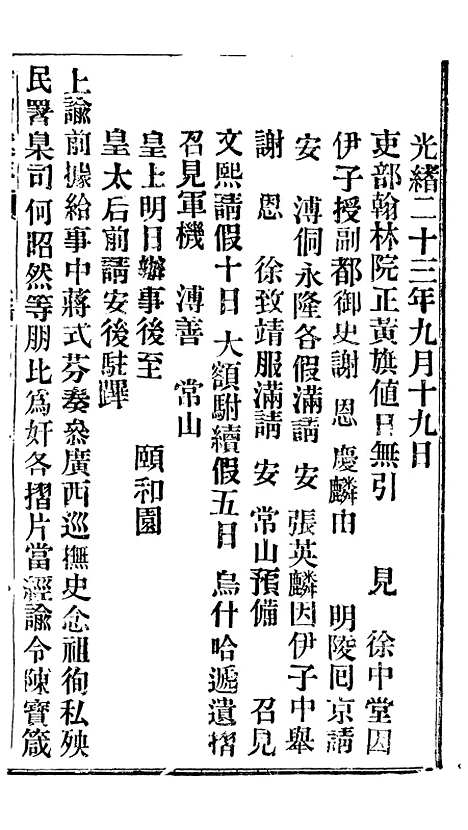 光緒二十三年九月十九日
吏部翰林院正黃旗值日無引　見　徐中堂因
伊子授副都御史謝　恩　慶麟由　明陵囘京請
安　溥侗永隆各假滿請　安　張英麟因伊子中舉
謝　恩　徐致靖服滿請　安　常山預備　召見
文熙請假十日　大額駙續假五日　烏什哈遞遺摺
召見軍機　溥善　常山
皇上明日辦事後至　頤和園
皇太后前請安後駐蹕
上諭前據給事中蔣式芬奏叅廣西巡撫史念祖徇私殃
民署臬司何昭然等朋比爲奸各摺片當經諭令陳寶箴